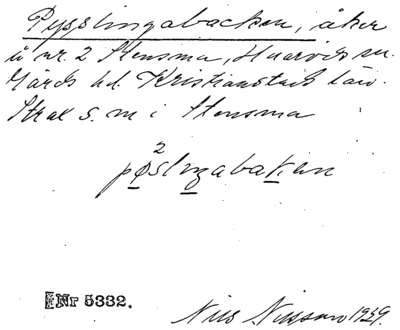 Pysslingabacken, åker
å nr. 2 Stensma, Hvarvets sn.
Gärds hd. Kristianstads län.
Strax s. m i Stensma
2
pøslingabaken
Nr 5332.
Nils Nilsson 1929.